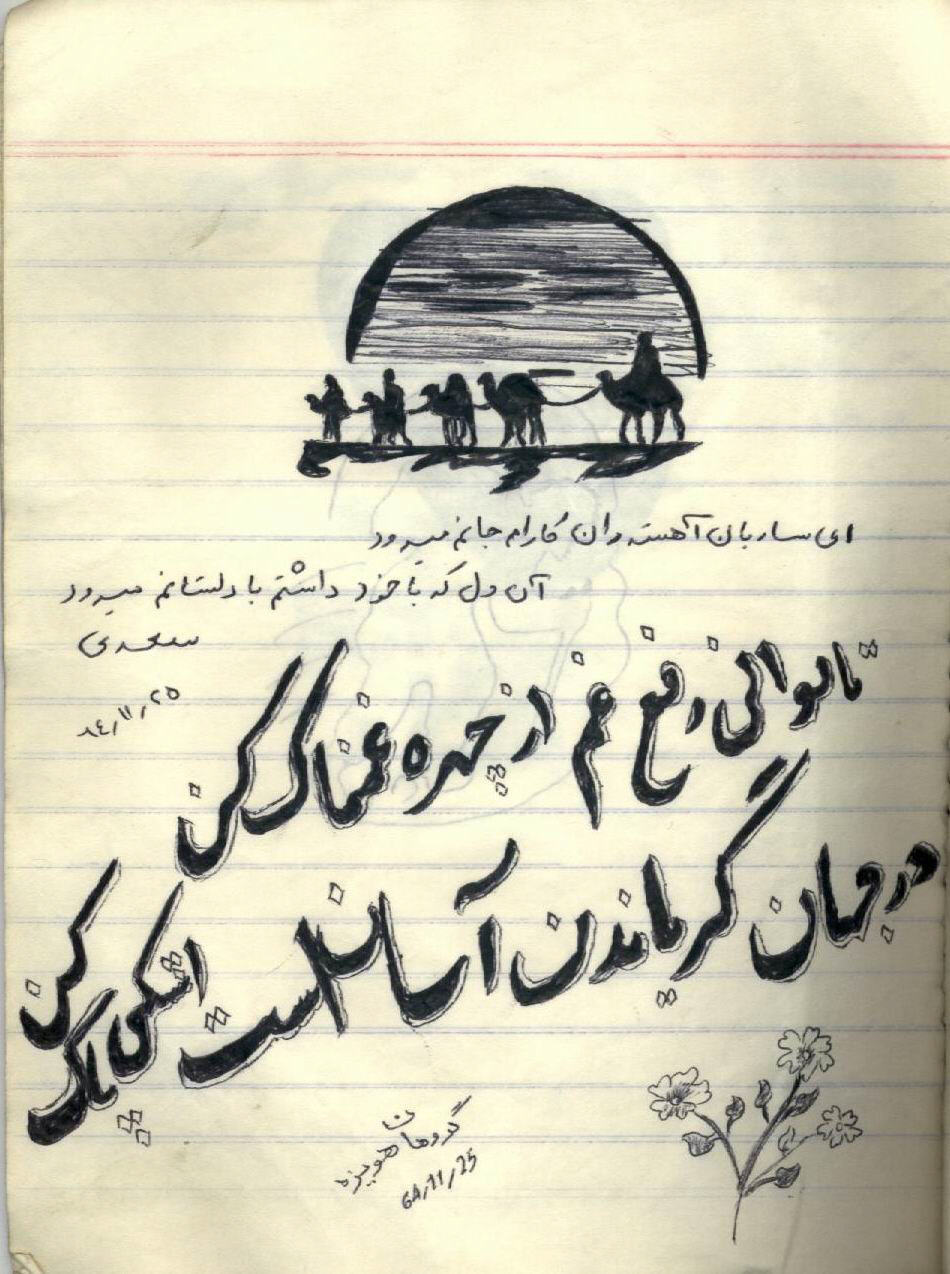 ای ساربان آهسته ران کارام جانم میرود
آن دل که با خود داشتم با دلستانم میرود
سعدی
تا توانی رفع غم از چهره غمناک کن
در جهان گریاندن آسان است اشکی پاک کن
گروهان هویزه
64,11,25